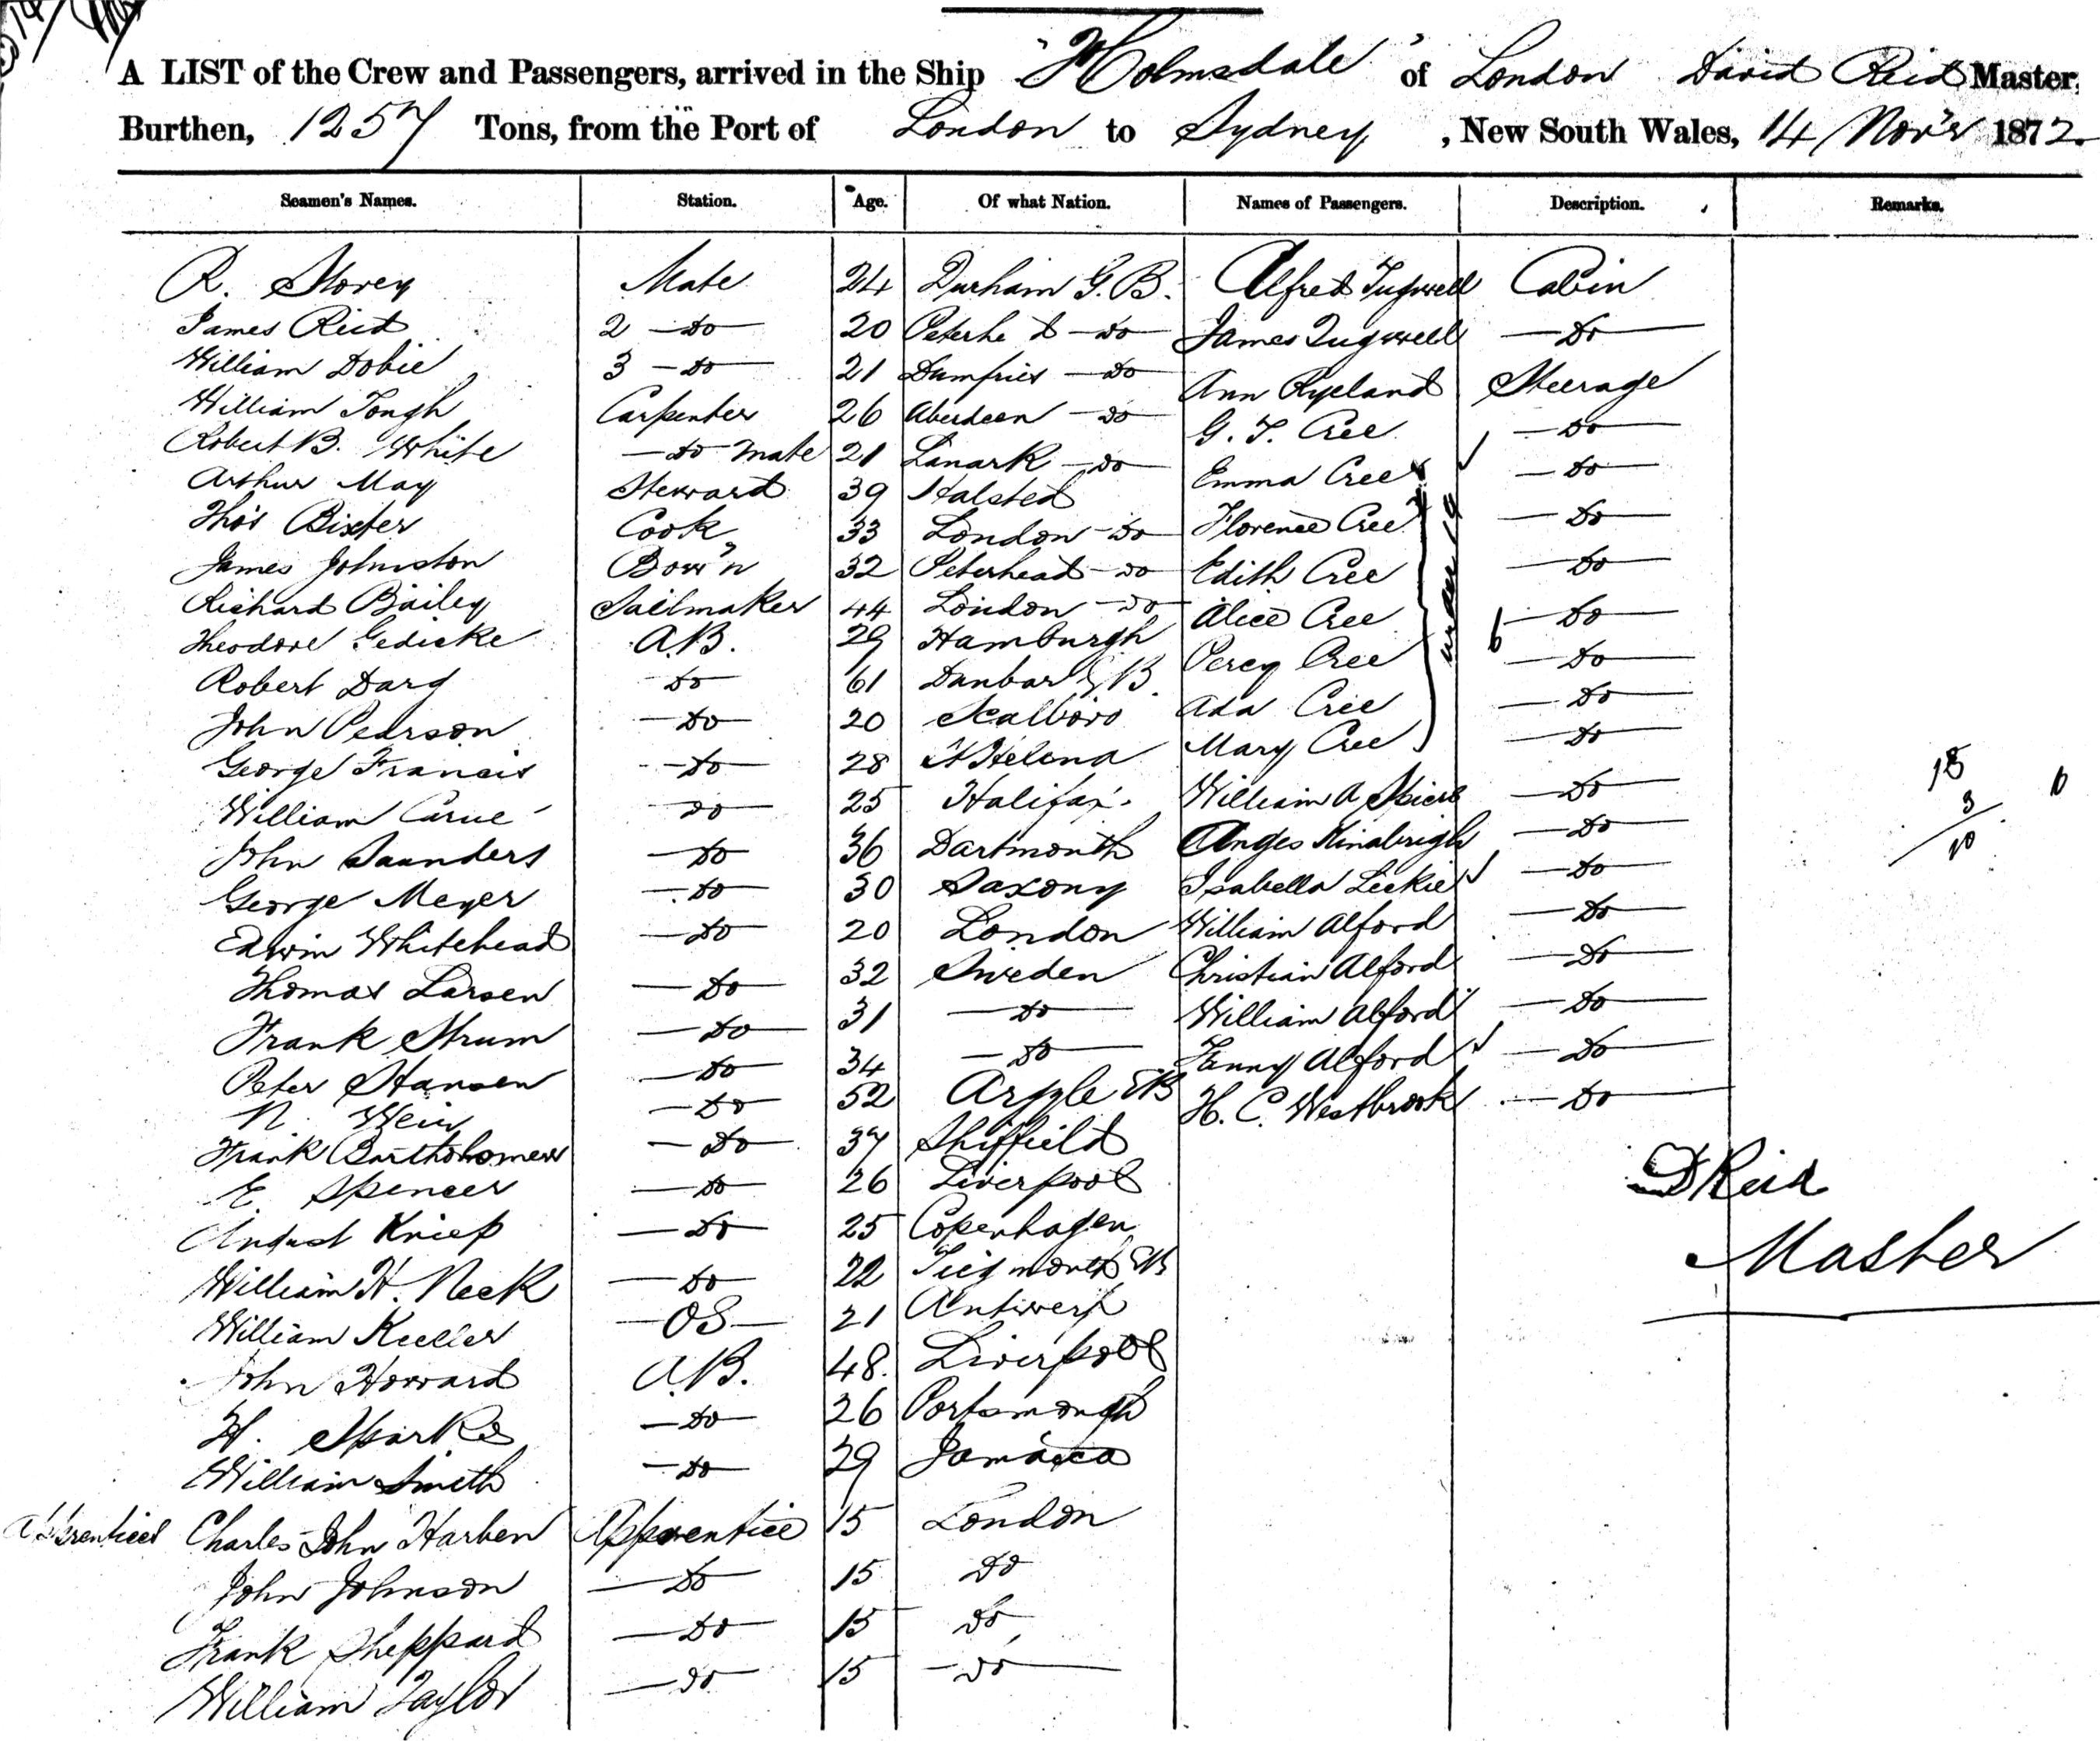 A LIST of the Crew and Passengers, arrived in the Ship "Holmsdale" of London David Reid Master,
Burthen, 1257 Tons, from the Port of London to Sydney, New South Wales, 14 Nov'r 1872.
Seamen's Names. Station. Age. Of what Nation. Names of Passengers. Description. Remarks.
R. Storey Mate 24 Durham G.B. Alfred Tugwell Cabin
James Reid 2 Do 20 Peterhe d Do James Tugwell Do
William Dobie 3 Do 21 Dumfries Do Ann Ryeland Steerage
William Tough Carpenter 26 Aberdeen Do G. T. Cree Do
Robert B. White Do Mate 21 Lanark Do Emma Cree Do
Arthur May Steward 39 Halsted Florence Cree Do
Thos Bixter Cook 33 London Do Edith Cree Do
James Johnston Bosw'n 32 Peterhead Do Alice Cree Do
Richard Bailey Sailmaker 44 London Do Percy Cree Do
Theodore Gedicke A.B. 29 Hamburgh Ada Cree Do
Robert Darg Do 61 Dunbar G B. Mary Cree Do
under 12
6
John Pearson Do 20 Scalboro William A Spiers Do
George Francis Do 28 St Helena Anges Kinabrigh Do
William Carue Do 25 Halifax. Isabella Leckie Do
John Saunders Do 36 Dartmouth William Alford Do
George Meyer Do 30 Saxony Christian Alford Do
Edwin Whitehead Do 20 London William Alford Do
Thomas Larsen Do 32 Sweden Fanny Alford Do
Frank Strum Do 31 Do H. C. Westbrook Do
Peter Hansen Do 34 Do
N. Weir Do 52 Argyle GB
Frank Bartholomew Do 37 Shiffield
E. Spencer Do 26 Liverpool
August Kniep Do 25 Copenhagen
William H. Neck Do 22 Tiegmouth GB
William Keeller OS 21 Antwerp
John Howard A.B. 48. Liverpool
H. Sparks Do 26 Portsmough
William Smith Do 29 Jamaica
Apprentices Charles John Harben Apprentice 15 London
John Johnson Do 15 Do
Frank Sheppard Do 15 Do
William Taylor Do 15 Do
18
3
D Reid
Master